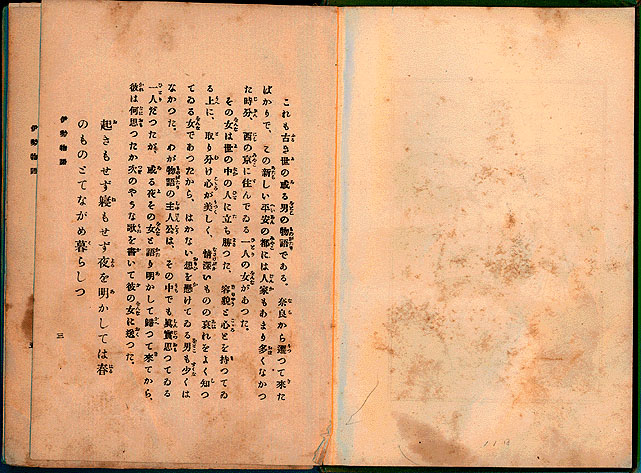 これも古き世の或る男の物語である。奈良から遷つて來た
ばかりで、この新しい平安の都には人家もあまり多くなかつ
た時分、西の京に住んでゐる一人の女があつた。
その女は世の中の人に立ち勝つた、容貌と心とを持つてゐ
る上に、取り分け心が美しく、情深いものの哀れをよく知つ
てゐる女であつたから、はかない想を懸けてゐる男も少くは
なかつた。わが物語の主人公は、その中でも眞實思つてゐる
一人だつたが、或る夜その女と語り明かして歸つて來てから、
彼は何思つたか次のやうな歌を書いて彼の女に送つた。
起きもせず寢もせず夜を明かしては春
のものとてながめ暮らしつ
伊勢物語
三
伊勢物語